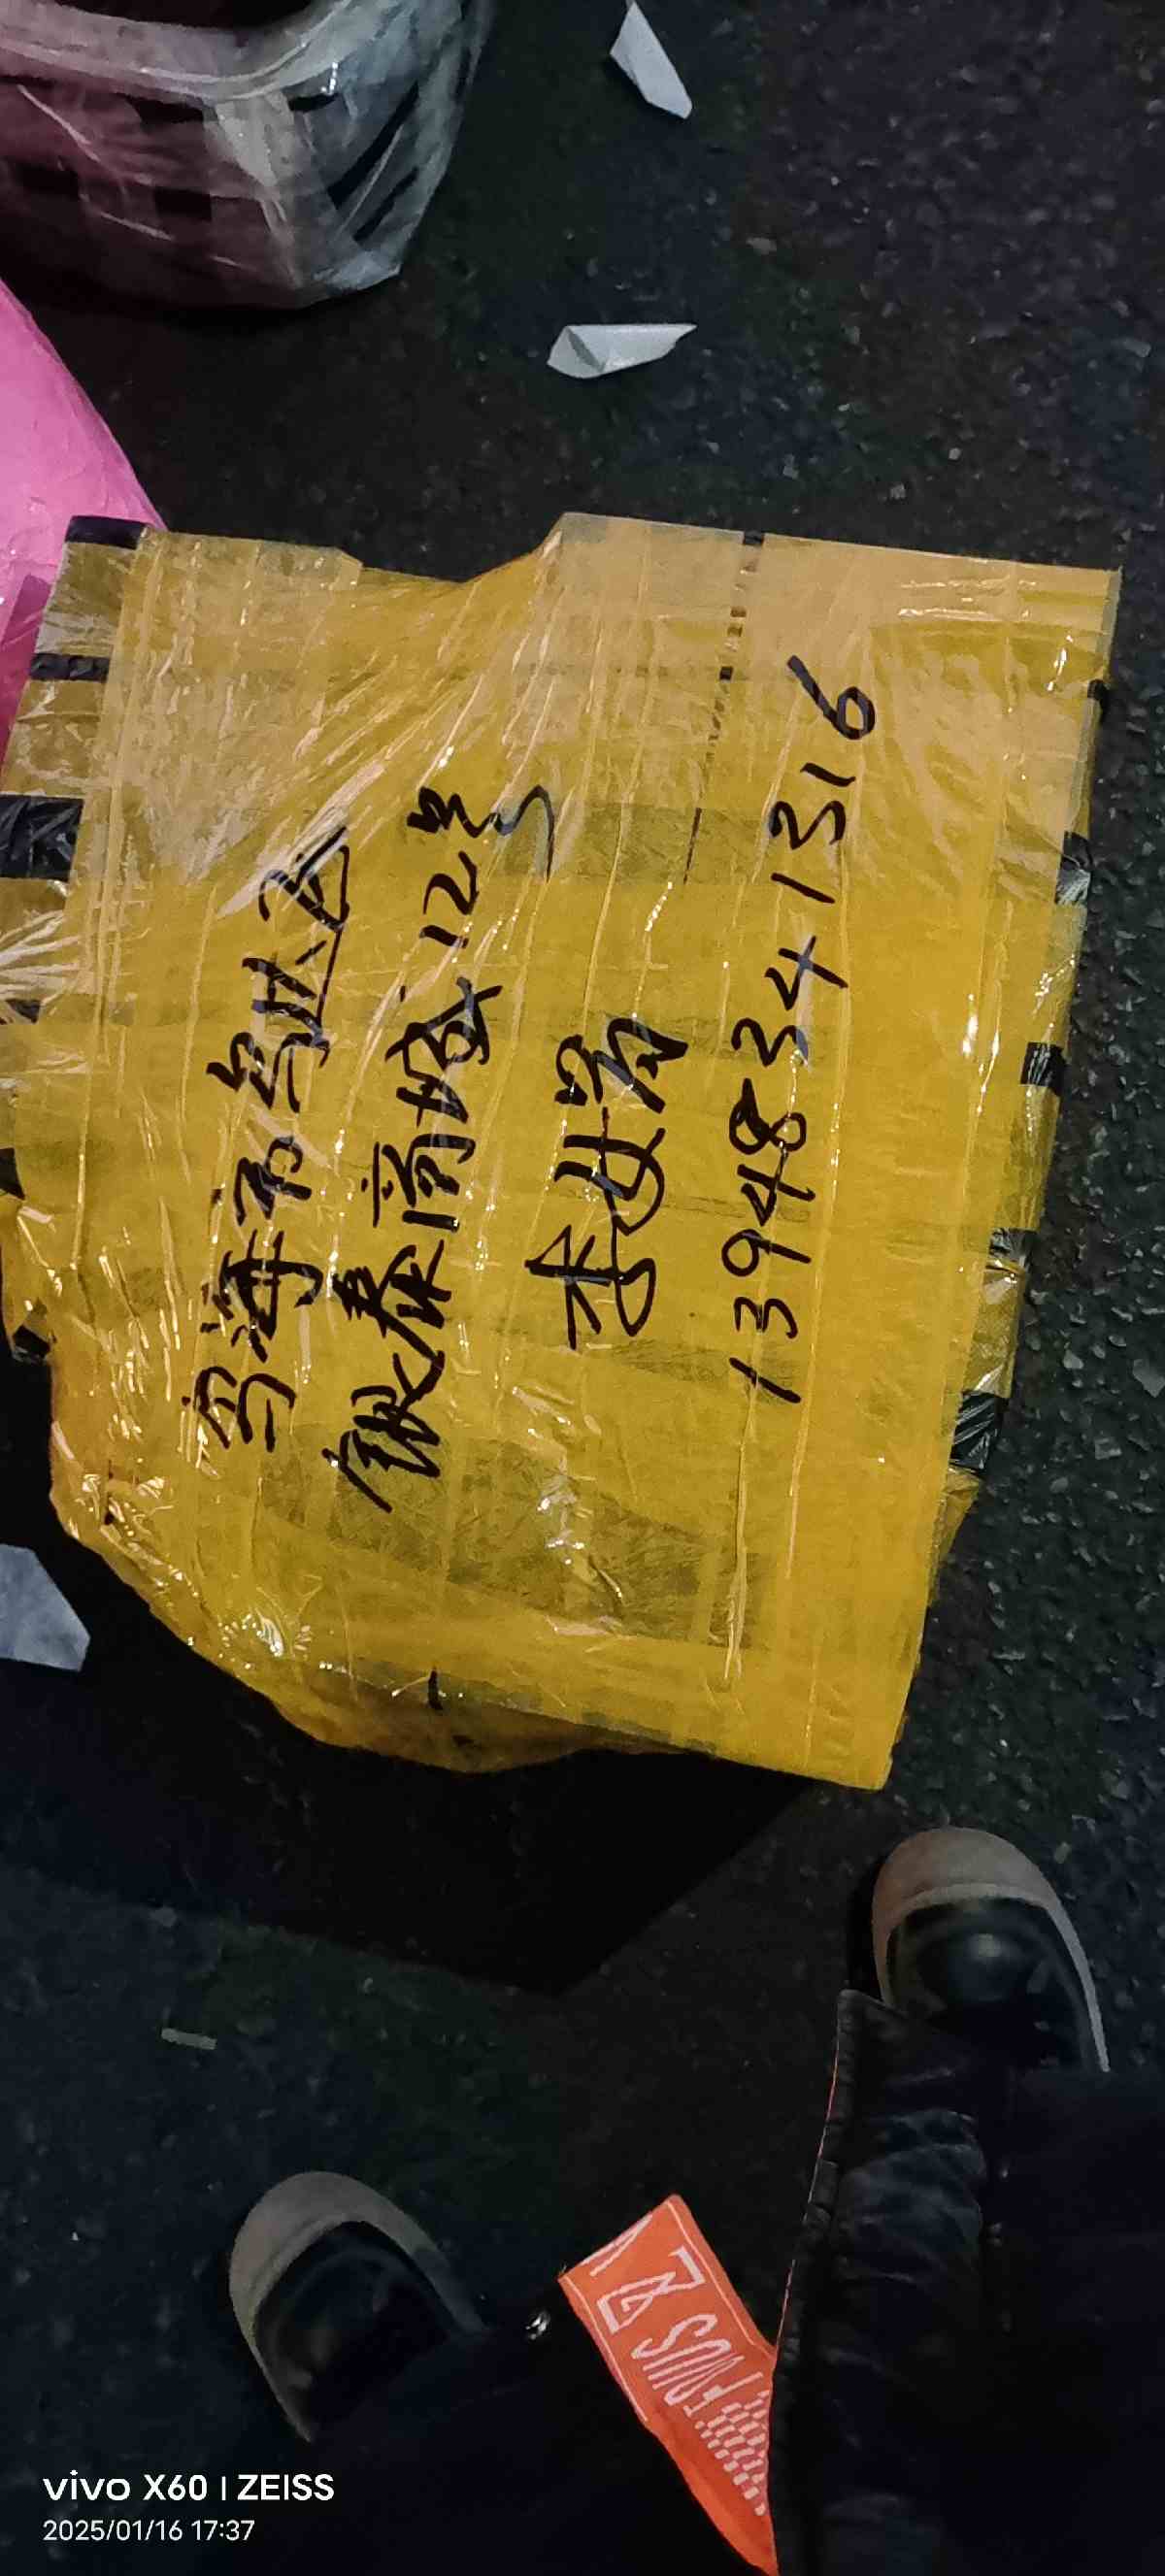 乌海市乌达
银泰商城12号
李建勇
13948341316
vivo X60 | ZEISS
2025/01/16 17:37